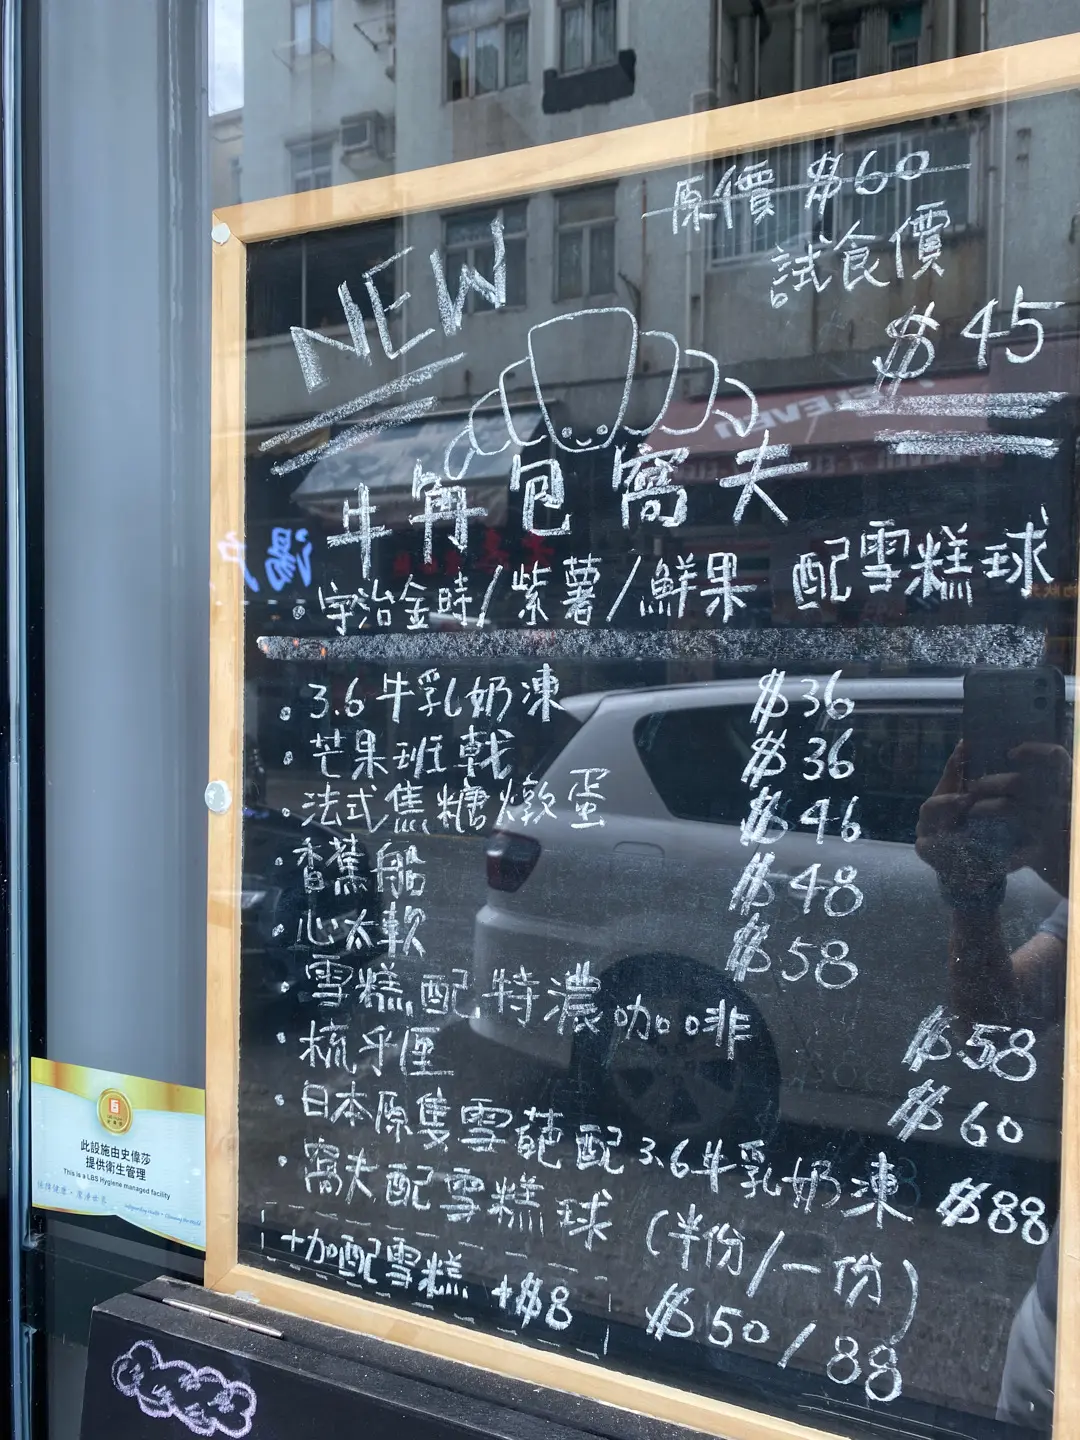 原價 $60
試食價
$45
NEW
牛角包窩夫
• 宇治金時/紫薯/鮮果 配雪糕球
• 3.6牛乳奶凍 $36
• 芒果班戟 $36
• 法式焦糖燉蛋 $46
• 香蕉船 $48
• 心太軟 $58
• 雪糕配特濃咖啡 $58
• 梳乎厘 $60
• 日本原隻雪葩配3.6牛乳奶凍 $88
• 窩夫配雪糕球 (半份/一份)
$50/88
+加配雪糕 +$8
此設施由史偉莎
提供衛生管理
This is a LBS Hygiene managed facility